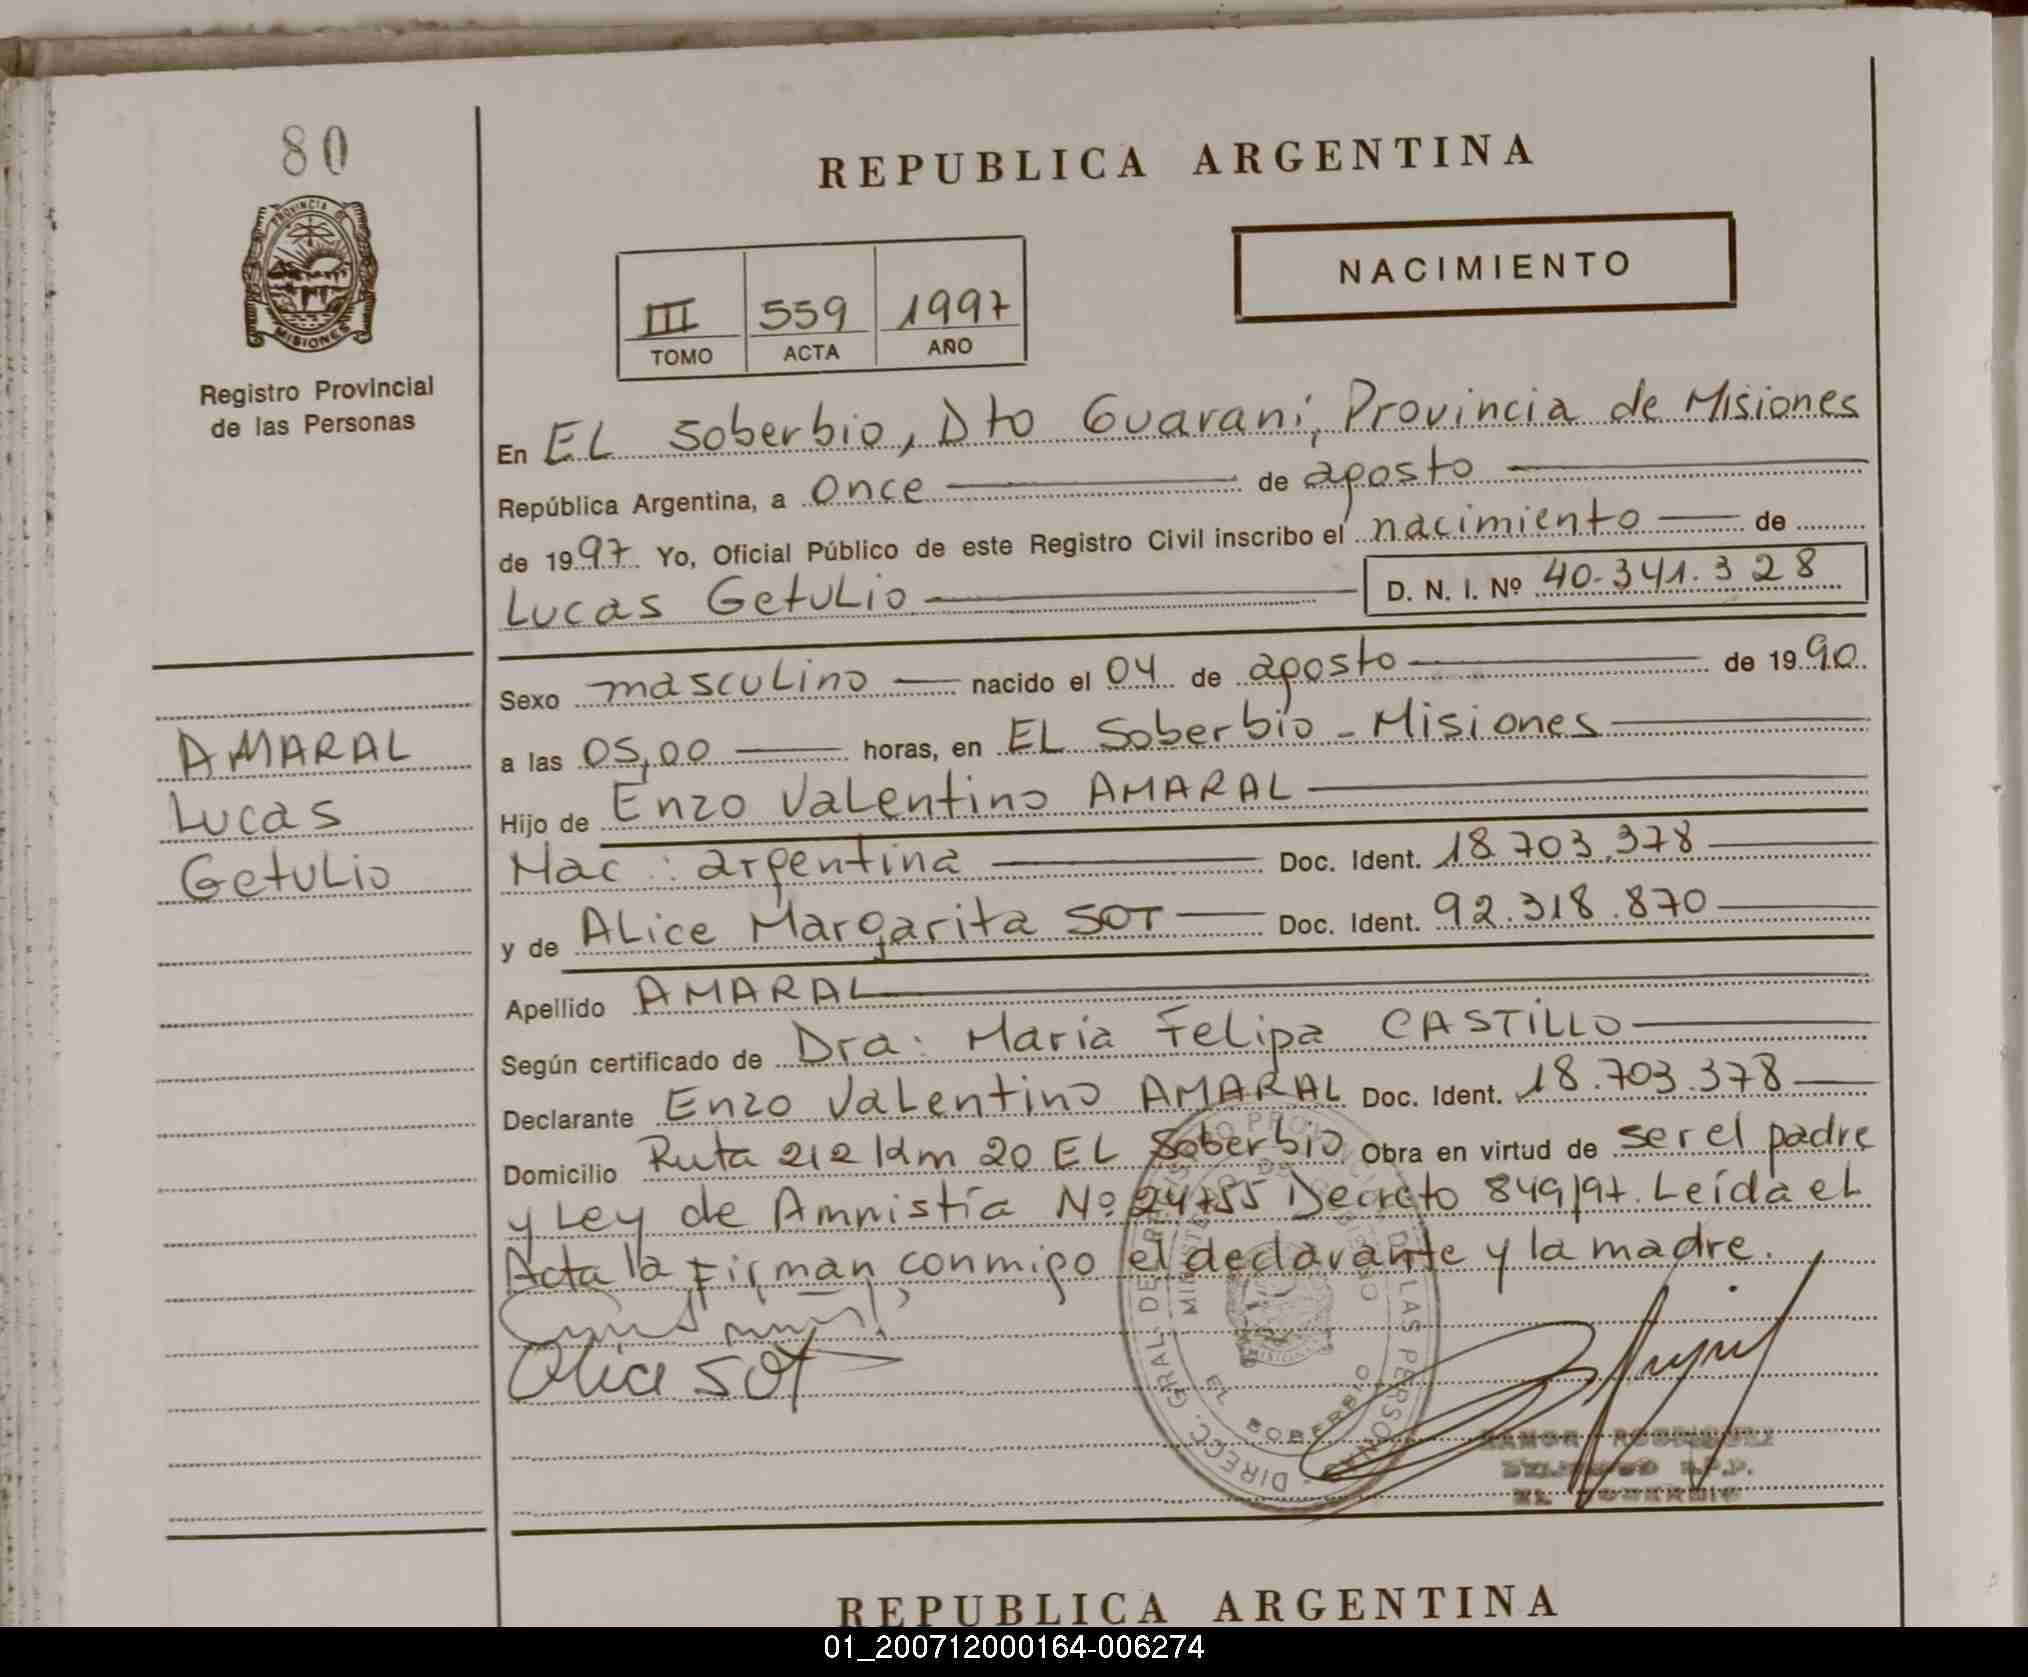 80
PROVINCIA DE
MISIONES
Registro Provincial
de las Personas
AMARAL
Lucas
Getulio
REPUBLICA ARGENTINA
NACIMIENTO
III 559 1997
TOMO ACTA AÑO
En EL Soberbio, Dto Guaraní, Provincia de Misiones
República Argentina, a once de agosto
de 1997 Yo, Oficial Público de este Registro Civil inscribo el nacimiento de
Lucas Getulio D. N. I. Nº 40.341.328
Sexo masculino nacido el 04 de agosto de 1990
a las 05,00 horas, en EL Soberbio - Misiones
Hijo de Enzo Valentino AMARAL
Nac: argentina Doc. Ident. 18.703.378
y de ALice Margarita SOT Doc. Ident. 92.318.870
Apellido AMARAL
Según certificado de Dra: María Felipa CASTILLO
Declarante Enzo Valentino AMARAL Doc. Ident. 18.703.378
Domicilio Ruta 212 Km 20 EL Soberbio Obra en virtud de ser el padre
y Ley de Amnistía Nº 24755 Decreto 849/97. Leída el
Acta la firman conmigo el declarante y la madre.
Alice SOT
DIRECC. GRAL. DE REGISTRO PROVINCIAL DE LAS PERSONAS
EL SOBERBIO
MISIONES
RAMON RODRIGUEZ
EL SOBERBIO
REPUBLICA ARGENTINA
01_200712000164-006274